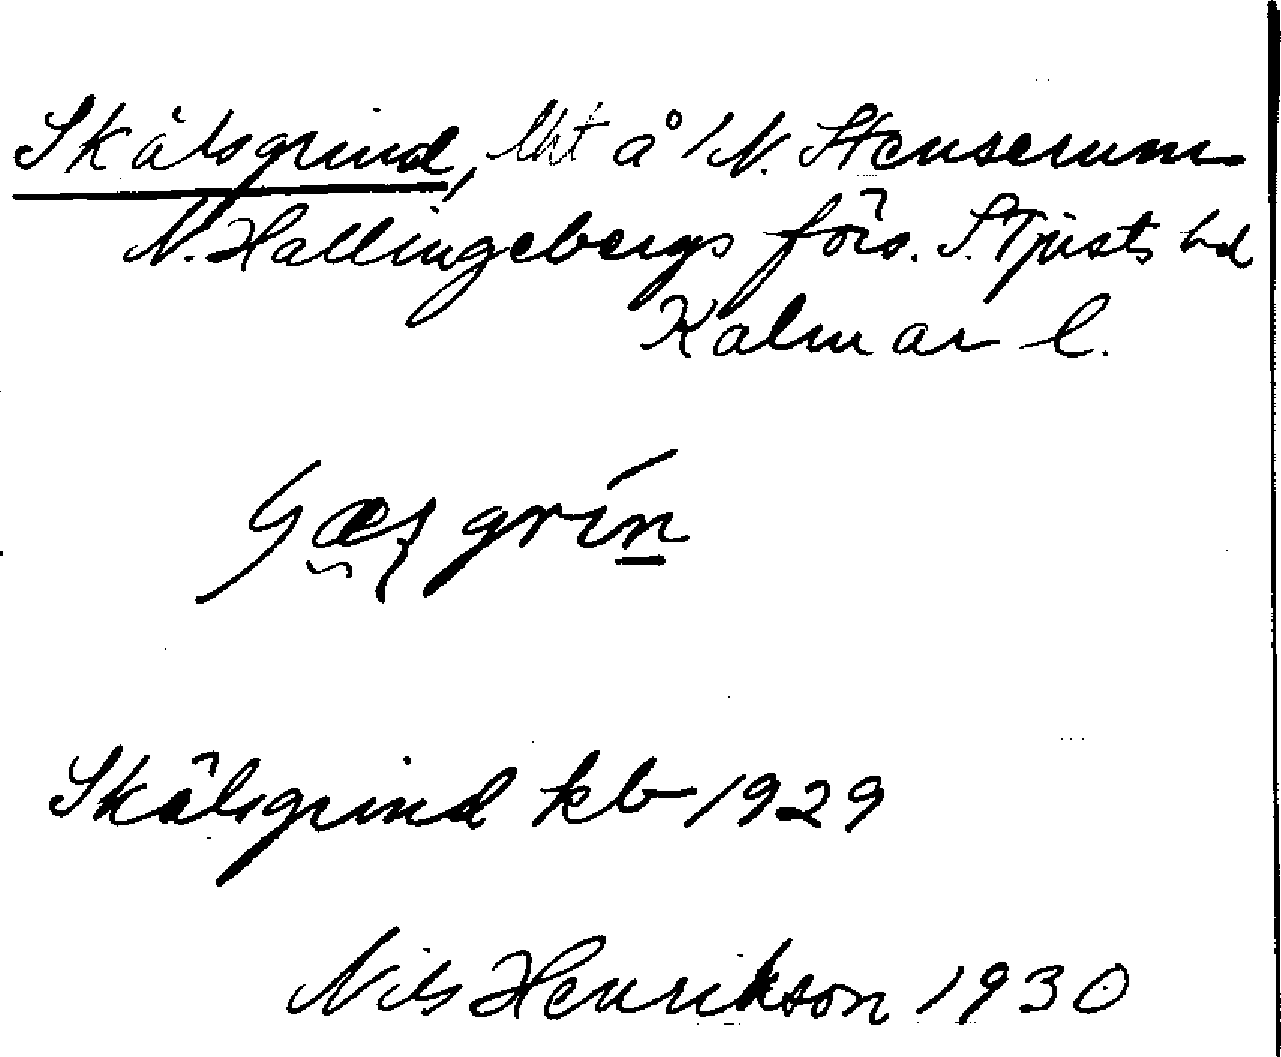 Skälsgrind, lht å 1/1 N. Stenserum
N. Hallingebergs förs. S. Tjusts hd
Kalmar l.
grín
Skälsgrind kb 1929
Nils Henrikson 1930